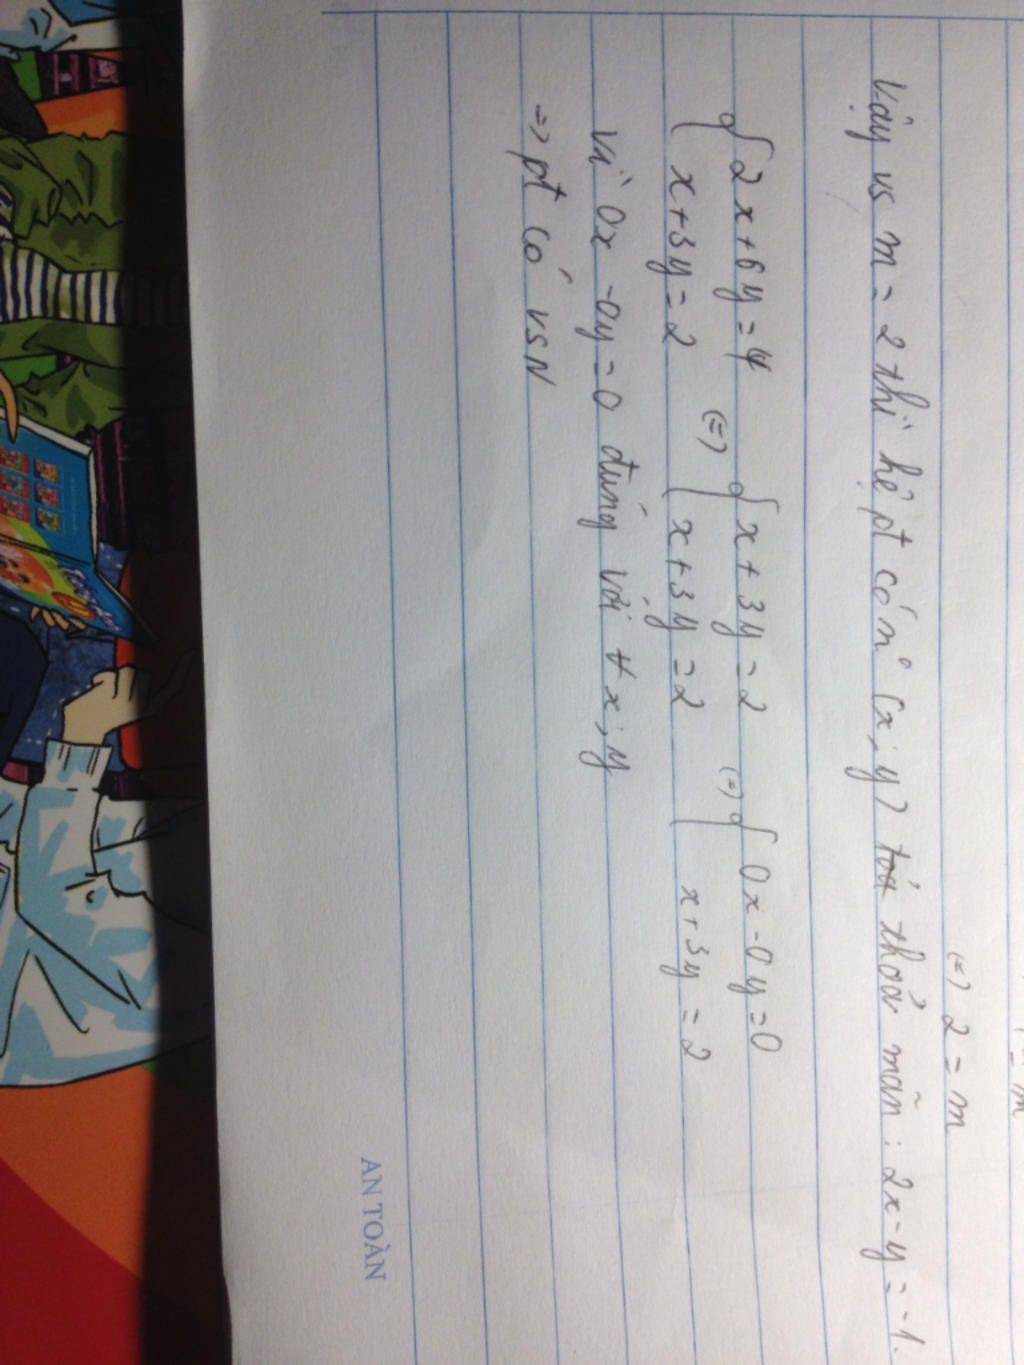 (=) 2 = m
Vậy vs m = 2 thì hệ pt có n° (x; y) thoả mãn : 2x - y = -1.
{ 2x + 6y = 4 (=) { x + 3y = 2 (=) { 0x - 0y = 0
{ x + 3y = 2 { x + 3y = 2 { x + 3y = 2
Vì 0x - 0y = 0 đúng với ∀ x; y
=> pt có VSN
AN TOÀN